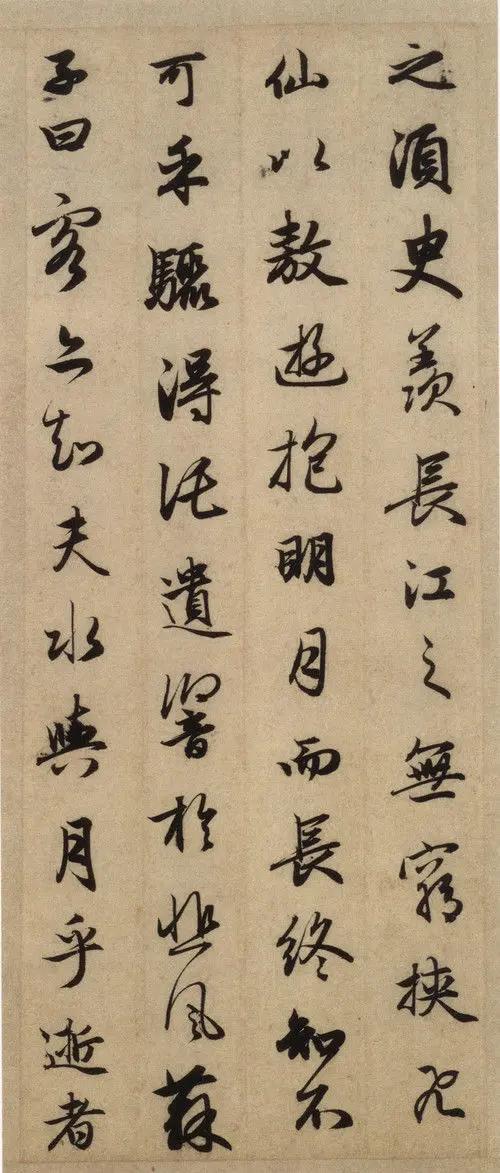 之須臾羨長江之無窮挾飛
仙以敖遊抱明月而長終知不
可乎驟得託遺響於悲風蘇
子曰客亦知夫水與月乎逝者